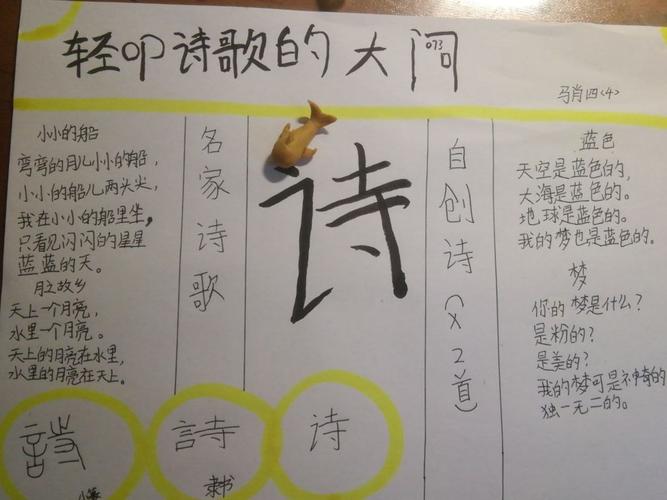 轻叩诗歌的大门
马肖四(4)
小小的船
弯弯的月儿小小的船,
小小的船儿两头尖,
我在小小的船里坐,
只看见闪闪的星星
蓝蓝的天。
月之故乡
天上一个月亮,
水里一个月亮。
天上的月亮在水里,
水里的月亮在天上。
名家诗歌
诗
自创诗(×2首)
蓝色
天空是蓝色的,
大海是蓝色的。
地球是蓝色的。
我的梦也是蓝色的。
梦
你的梦是什么?
是粉的?
是美的?
我的梦可是神奇的
独一无二的。
詩
小篆
詩
隶书
诗